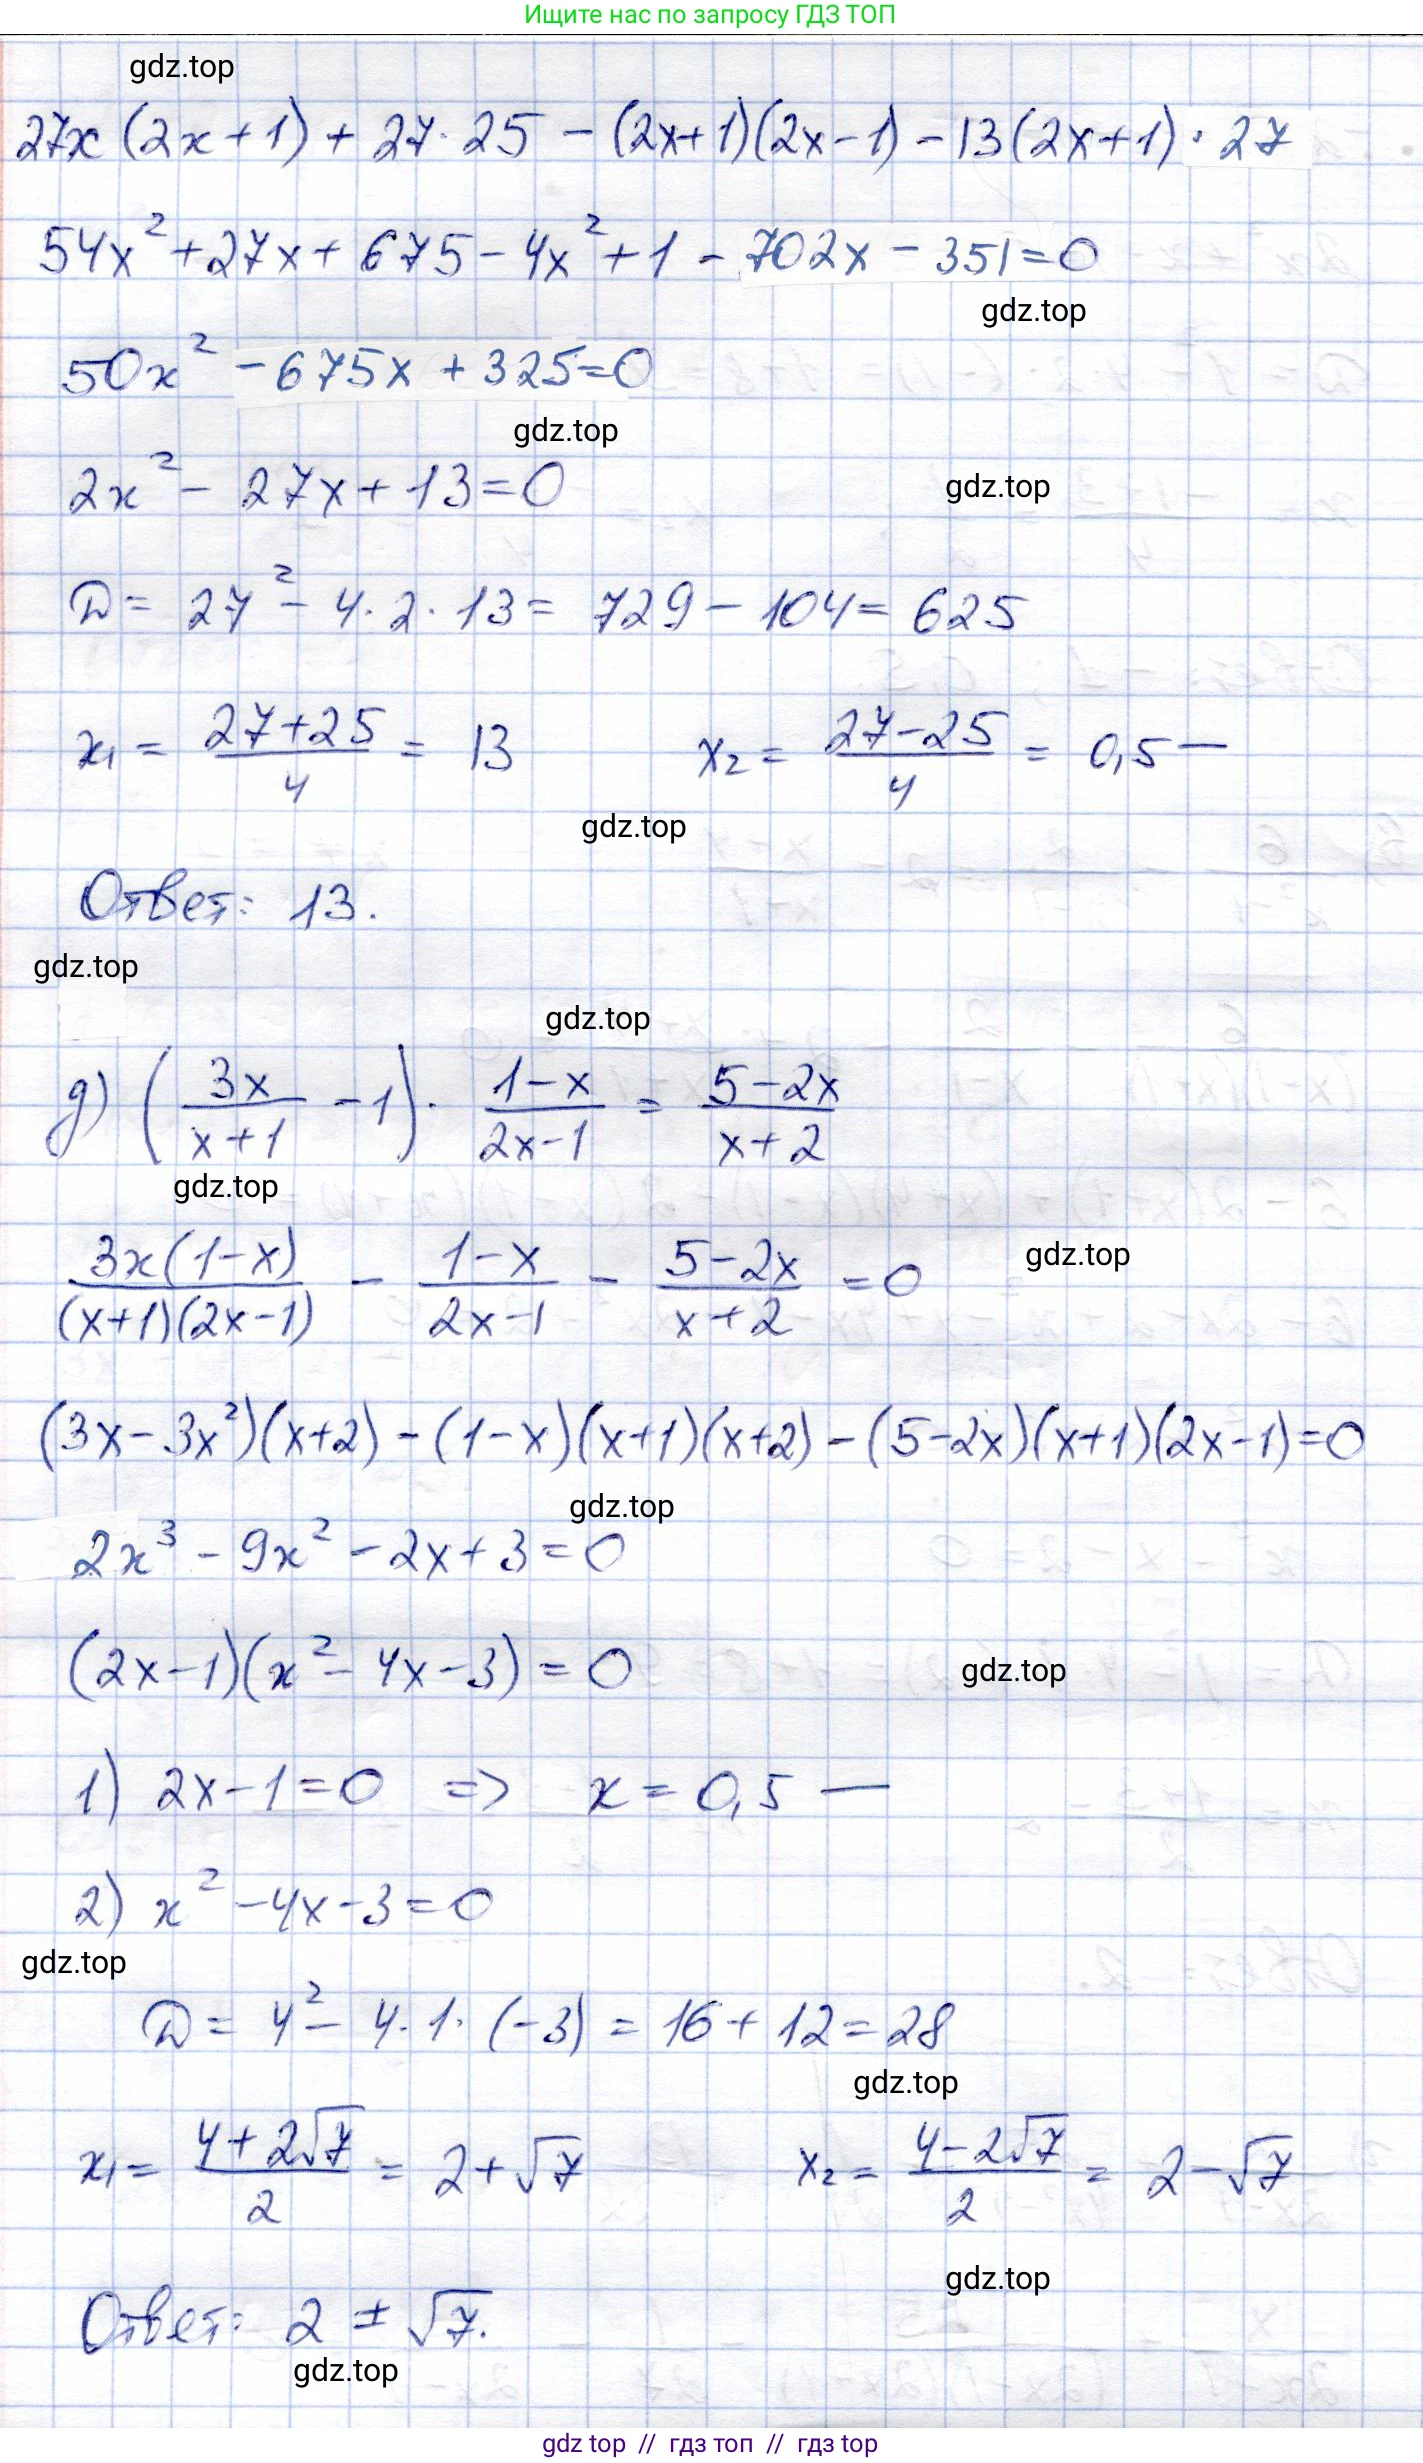 Ищите нас по запросу ГДЗ ТОП
gdz.top
27x(2x+1) + 27·25 - (2x+1)(2x-1) - 13(2x+1)·27
54x² + 27x + 675 - 4x² + 1 - 702x - 351=0
gdz.top
50x² - 675x + 325=0
gdz.top
2x² - 27x + 13=0
gdz.top
D = 27² - 4·2·13 = 729 - 104 = 625
x₁ = (27+25)/4 = 13 x₂ = (27-25)/4 = 0,5 —
gdz.top
Ответ: 13.
gdz.top
gdz.top
д) (3x/(x+1) - 1) · (1-x)/(2x-1) = (5-2x)/(x+2)
gdz.top
3x(1-x)/((x+1)(2x-1)) - (1-x)/(2x-1) - (5-2x)/(x+2) = 0
gdz.top
(3x-3x²)(x+2) - (1-x)(x+1)(x+2) - (5-2x)(x+1)(2x-1)=0
gdz.top
2x³ - 9x² - 2x + 3 = 0
(2x-1)(x² - 4x - 3) = 0
gdz.top
1) 2x-1=0 => x = 0,5 —
2) x² - 4x - 3 = 0
gdz.top
D = 4² - 4·1·(-3) = 16 + 12 = 28
gdz.top
x₁ = (4+2√7)/2 = 2+√7 x₂ = (4-2√7)/2 = 2-√7
gdz.top
Ответ: 2 ± √7.
gdz.top
gdz top // гдз топ // гдз top